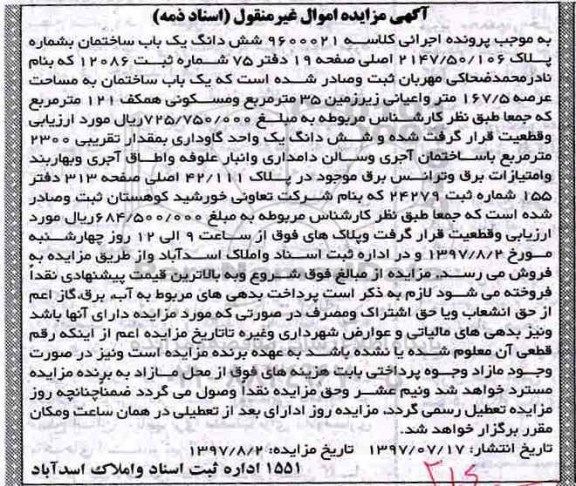 آگهی مزایده اموال غیر منقول (اسناد ذمه)
به موجب پرونده اجرائی کلاسه ۹۶۰۰۰۲۱ شش دانگ یک باب ساختمان بشماره
پلاک ۲۱۴۷/۵۰/۱۰۶ اصلی صفحه ۱۹ دفتر ۷۵ شماره ثبت ۱۲۰۸۶ که بنام
نادرمحمدضحاکی مهربان ثبت وصادر شده است که یک باب ساختمان به مساحت
عرصه ۱۶۷/۵ متر واعیانی زیرزمین ۳۵ مترمربع ومسکونی همکف ۱۲۱ مترمربع
که جمعا طبق نظر کارشناس مربوطه به مبلغ ۷۲۵/۷۵۰/۰۰۰ریال مورد ارزیابی
وقطعیت قرار گرفت شده و شش دانگ یک واحد گاوداری بمقدار تقریبی ۲۳۰۰
مترمربع باساختمان آجری وسالن دامداری وانبار علوفه واطاق آجری وبهاربند
وامتیازات برق وترانس برق موجود در پلاک ۴۲/۱۱۱ اصلی صفحه ۳۱۳ دفتر
۱۵۵ شماره ثبت ۲۴۲۷۹ که بنام شرکت تعاونی خورشید کوهستان ثبت وصادر
شده است که جمعا طبق نظر کارشناس مربوطه به مبلغ ۶۸۴/۵۰۰/۰۰۰ریال مورد
ارزیابی وقطعیت قرار گرفت وپلاک های فوق از ساعت ۹ الی ۱۲ روز چهارشنبه
مورخ ۱۳۹۷/۸/۲ و در اداره ثبت اسناد واملاک اسدآباد واز طریق مزایده به
فروش می رسد. مزایده از مبالغ فوق شروع وبه بالاترین قیمت پیشنهادی نقداً
فروخته می شود لازم به ذکر است پرداخت بدهی های مربوط به آب، برق،گاز اعم
از حق انشعاب ویا حق اشتراک ومصرف در صورتی که مورد مزایده دارای آنها باشد
ونیز بدهی های مالیاتی و عوارض شهرداری وغیره تاتاریخ مزایده اعم از اینکه رقم
قطعی آن معلوم شده یا نشده باشد به عهده برنده مزایده است ونیز در صورت
وجود مازاد وجوه پرداختی بابت هزینه های فوق از محل مازاد به برنده مزایده
مسترد خواهد شد ونیم عشر وحق مزایده نقداً وصول می گردد ضمناًچنانچه روز
مزایده تعطیل رسمی گردد، مزایده روز اداری بعد از تعطیلی در همان ساعت ومکان
مقرر برگزار خواهد شد.
تاریخ انتشار: ۱۳۹۷/۰۷/۱۷ تاریخ مزایده: ۱۳۹۷/۸/۲
۱۵۵۱ اداره ثبت اسناد واملاک اسدآباد